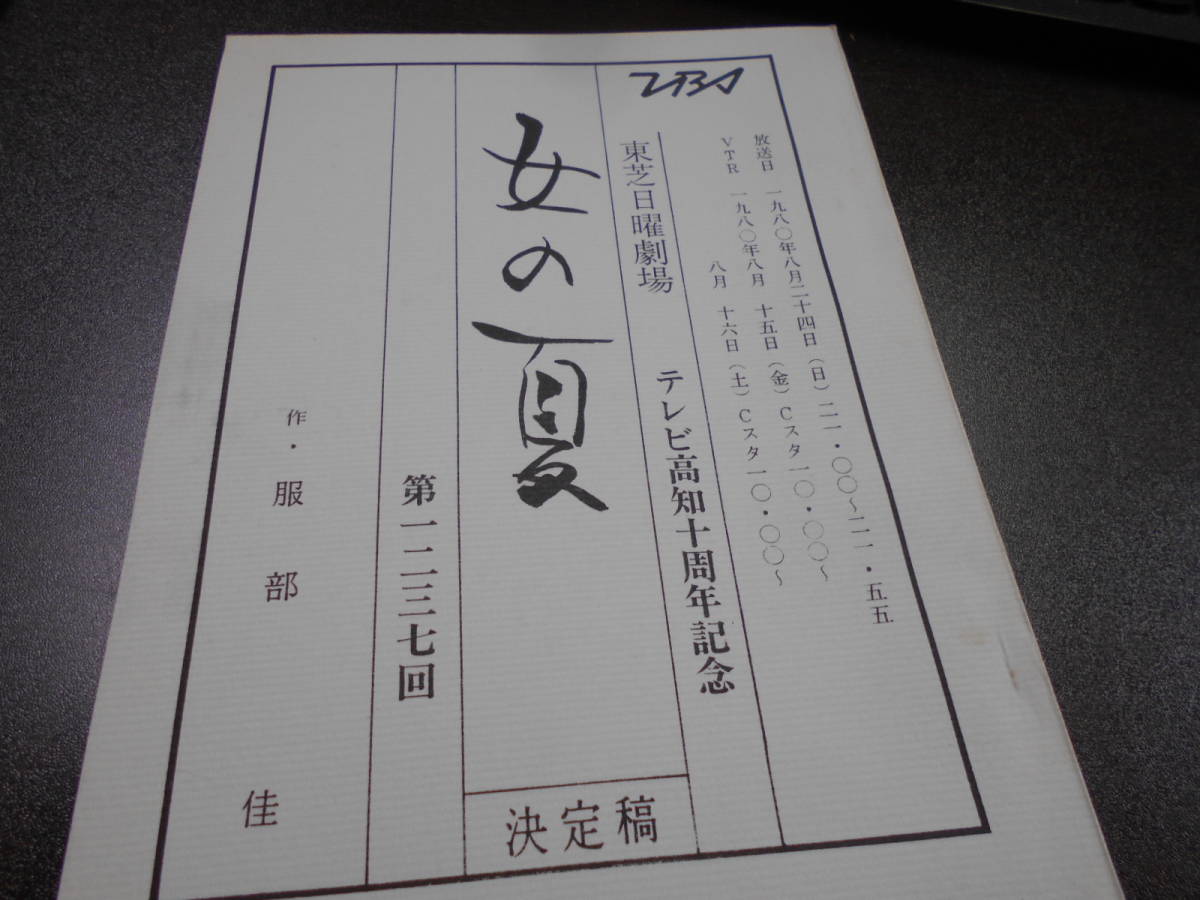 TBS
放送日 一九八〇年八月二十四日(日)二一・〇〇~二一・五五
VTR 一九八〇年八月 十五日(金)Cスタ一〇・〇〇~
八月 十六日(土)Cスタ一〇・〇〇~
東芝日曜劇場 テレビ高知十周年記念
女の夏
決定稿
第一二三七回
作・服部佳